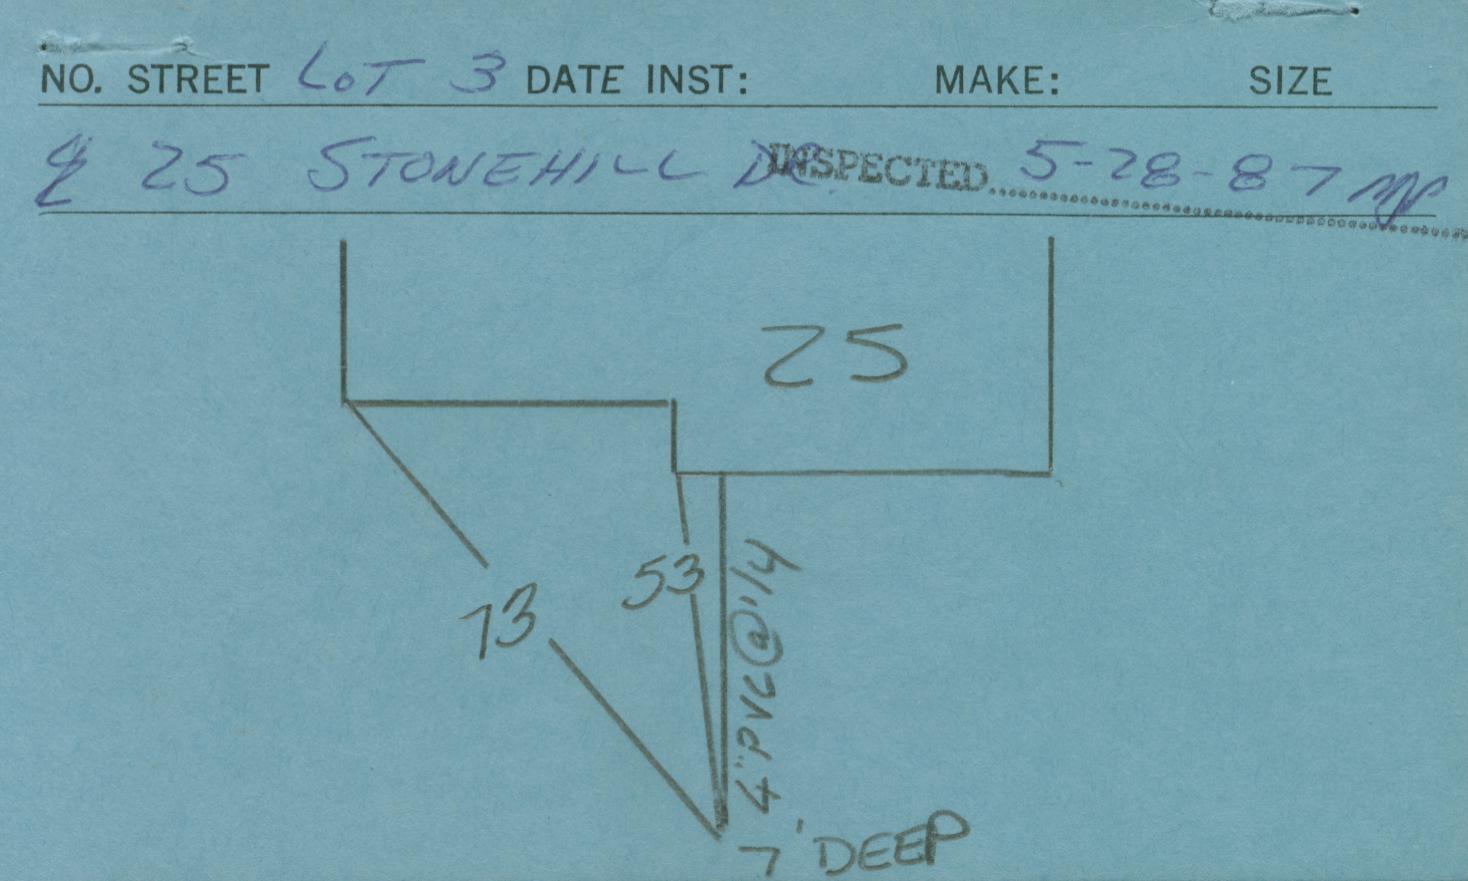 NO. STREET LOT 3 DATE INST: MAKE: SIZE
25 STONEHILL DR. INSPECTED 5-28-87
25
53
73
4" PVC @ 1/4
7' DEEP